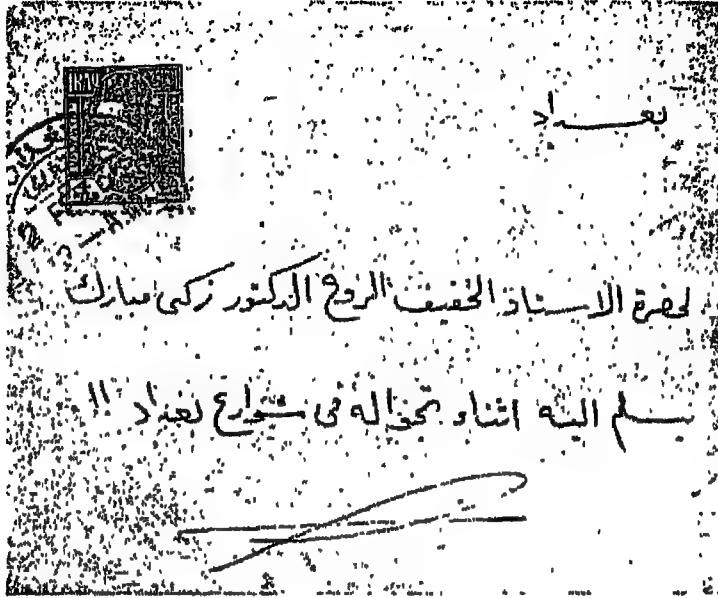 بغداد
لحضرة الاستاذ الخفيف الروح الدكتور زكي مبارك
يسلم اليه اثناء تجواله في شوارع بغداد !!